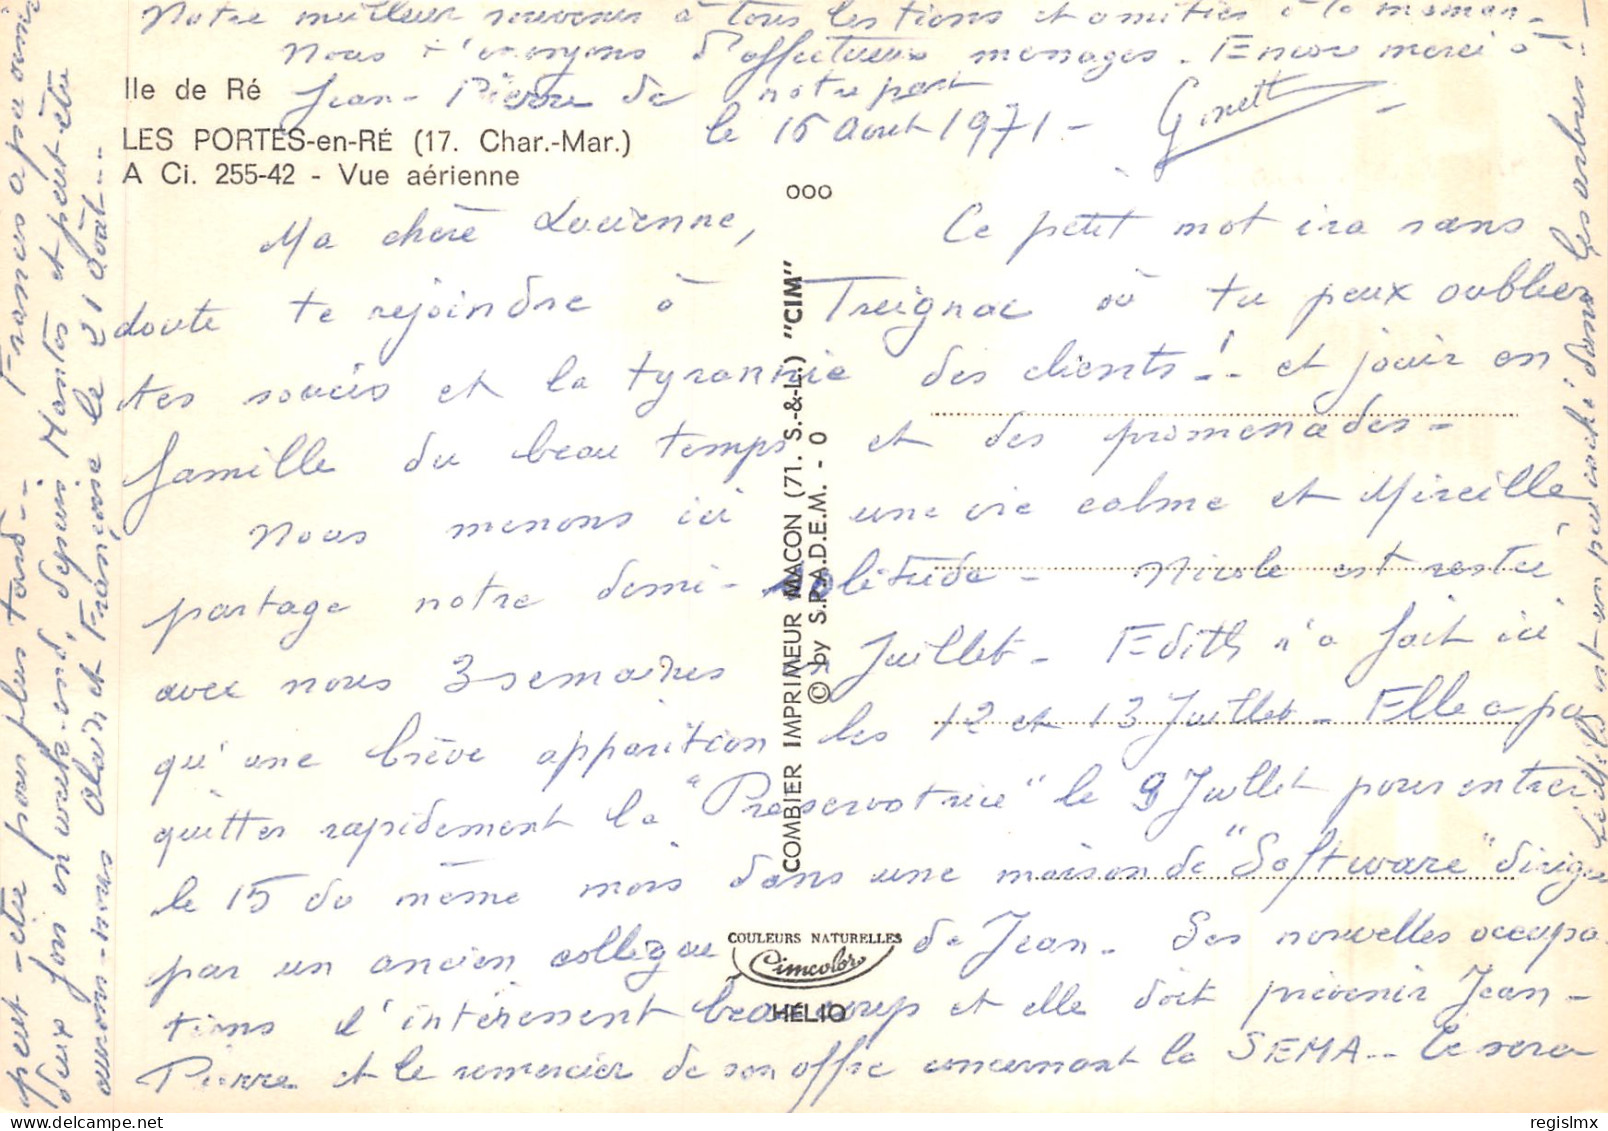 Ile de Ré
LES PORTES-en-RÉ (17. Char.-Mar.)
A Ci. 255-42 - Vue aérienne
le 16 Août 1971 -
Ma chère Lucienne, Ce petit mot ira sans
doute te rejoindre à Treignac où tu peux oublier
tes soucis et la tyrannie des clients !.. et jouir en
famille du beau temps et des promenades -
Nous menons ici une vie calme et Mireille
partage notre demi-solitude - Nicole est restée
avec nous 3 semaines en Juillet - Edith n'a fait ici
qu'une brève apparition les 12 et 13 Juillet - Elle a pu
quitter rapidement la "Préservatrice" le 9 Juillet pour entrer
le 15 du même mois dans une maison de "Software" dirigée
par un ancien collègue de Jean - Ses nouvelles occupa-
tions l'intéressent beaucoup et elle doit prévenir Jean-
Pierre et le remercier de son offre concernant la SEMA -- Ce sera
peut-être pour plus tard -- Nous avons
deux fois en week-end, depuis Mantes et peut-être
aurons-nous Alain et Françoise le 21 Août...
Notre meilleur souvenir à tous les tiens et amitiés à ta maman -
Nous t'envoyons d'affectueux messages. Encore merci à
Jean-Pierre de notre part
Ginett
est un peu caché dans les arbres !
COMBIER IMPRIMEUR MACON (71. S.-&-L.) "CIM"
© by S.P.A.D.E.M. - 0
ooo
COULEURS NATURELLES
Cimcolor
HÉLIO
regislmx